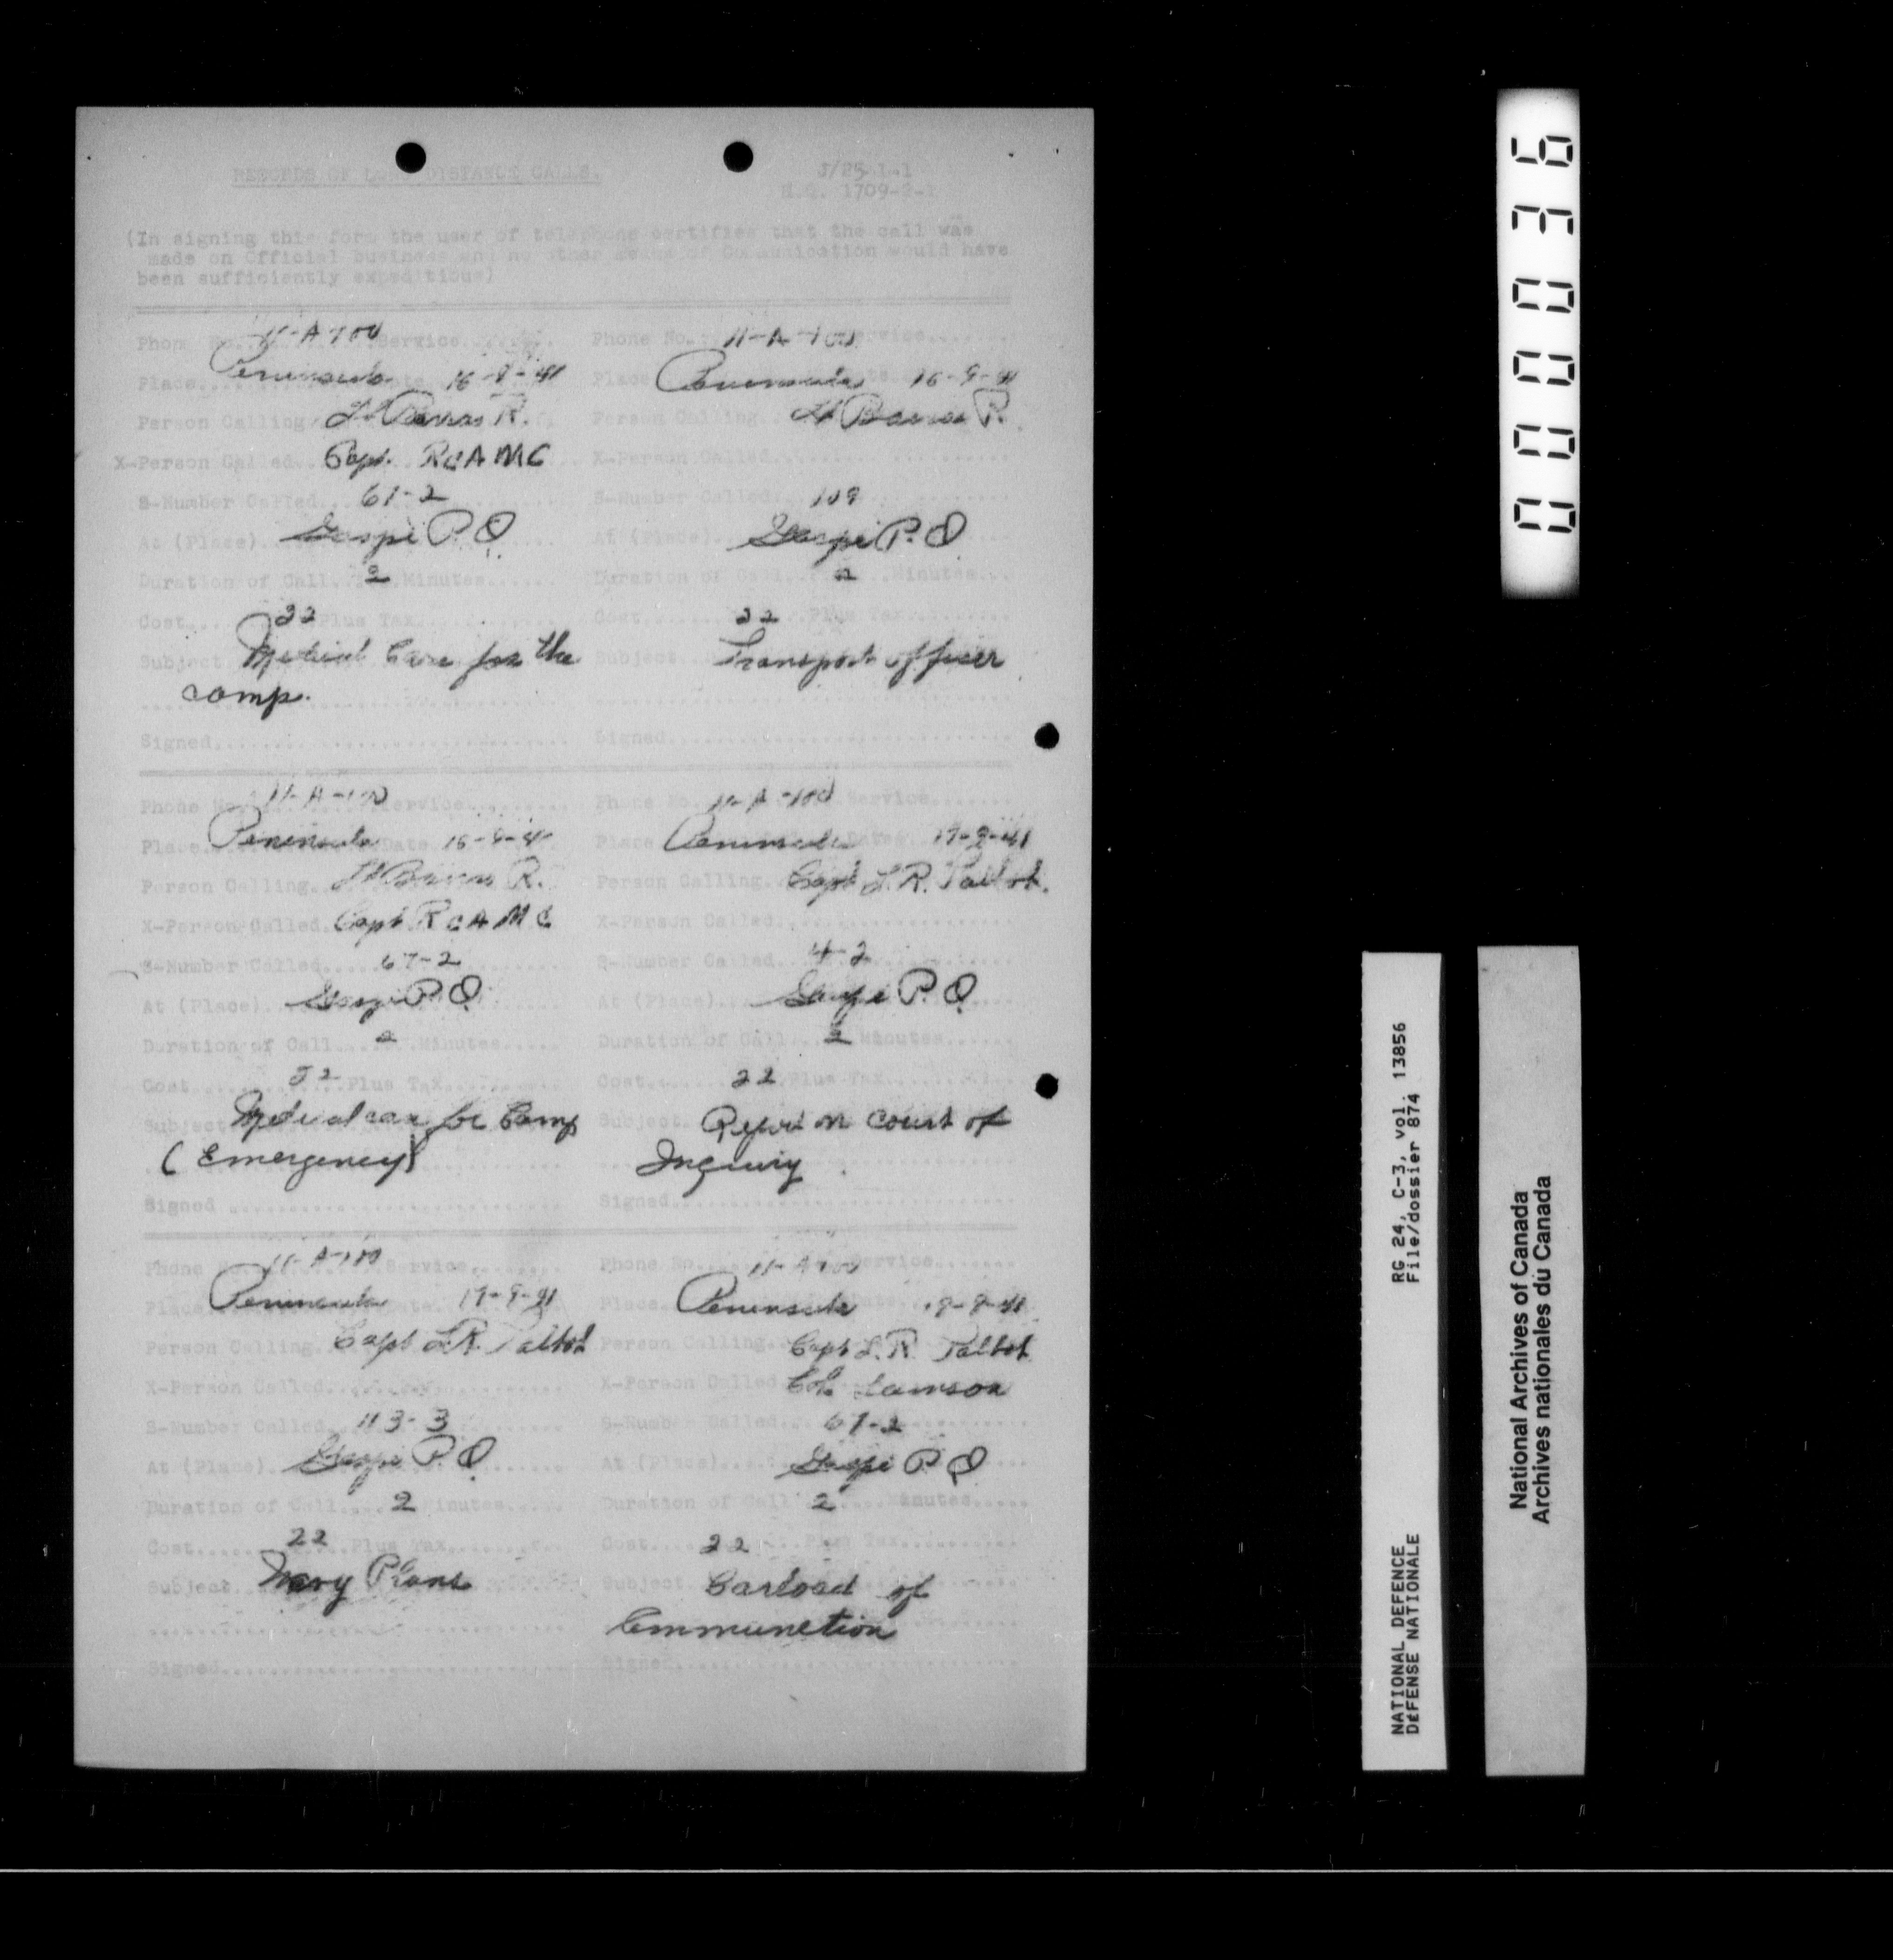 RECORDS OF LONG DISTANCE CALLS.
J/25-1-1
H.Q. 1709-2-1
(In signing this form the user of telephone certifies that the call was
made on Official business and no other means of Communication would have
been sufficiently expeditious)
Phone No. 11-A-100 Service
Place Peninsula Date 16-9-41
Person Calling Lt R.
X-Person Called Capt. RCAMC
S-Number Called 61-2
At (Place) Gaspé P.Q.
Duration of Call 2 Minutes
Cost 22 Plus Tax
Subject Medical Care for the
camp.
Signed
Phone No. 11-A-100 Service
Place Peninsula Date 16-9-41
Person Calling Lt R.
X-Person Called
S-Number Called 109
At (Place) Gaspé P.Q.
Duration of Call 2 Minutes
Cost 22 Plus Tax
Subject Transport officer
Signed
Phone No. 11-A-100 Service
Place Peninsula Date 16-9-41
Person Calling Lt R.
X-Person Called Capt RCAMC
S-Number Called 67-2
At (Place) Gaspé P.Q.
Duration of Call 2 Minutes
Cost 22 Plus Tax
Subject Medical care for Camp
(Emergency)
Signed
Phone No. 11-A-100 Service
Place Peninsula Date 17-9-41
Person Calling Capt L.R. Talbot.
X-Person Called
S-Number Called 4-2
At (Place) Gaspé P.Q.
Duration of Call 2 Minutes
Cost 22 Plus Tax
Subject Report on Court of
Inquiry
Signed
Phone No. 11-A-100 Service
Place Peninsula Date 17-9-41
Person Calling Capt L.R. Talbot
X-Person Called
S-Number Called 113-3
At (Place) Gaspé P.Q.
Duration of Call 2 Minutes
Cost 22 Plus Tax
Subject Navy Plans
Signed
Phone No. 11-A-100 Service
Place Peninsula Date -9-41
Person Calling Capt L.R. Talbot
X-Person Called Col. Lawson
S-Number Called 67-2
At (Place) Gaspé P.Q.
Duration of Call 2 Minutes
Cost 22 Plus Tax
Subject Carload of
Ammunetion
Signed
000036
RG 24, C-3, vol. 13856
File/dossier 874
NATIONAL DEFENCE
DÉFENSE NATIONALE
National Archives of Canada
Archives nationales du Canada